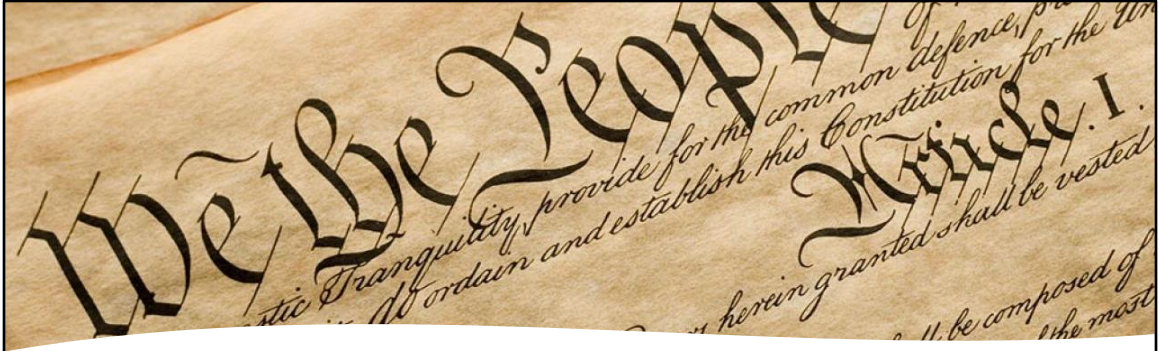 We the People
of
stic Tranquility, provide for the common defence, pr
do ordain and establish this Constitution for the Un
Article. I.
herein granted shall be vested
be composed of
the most